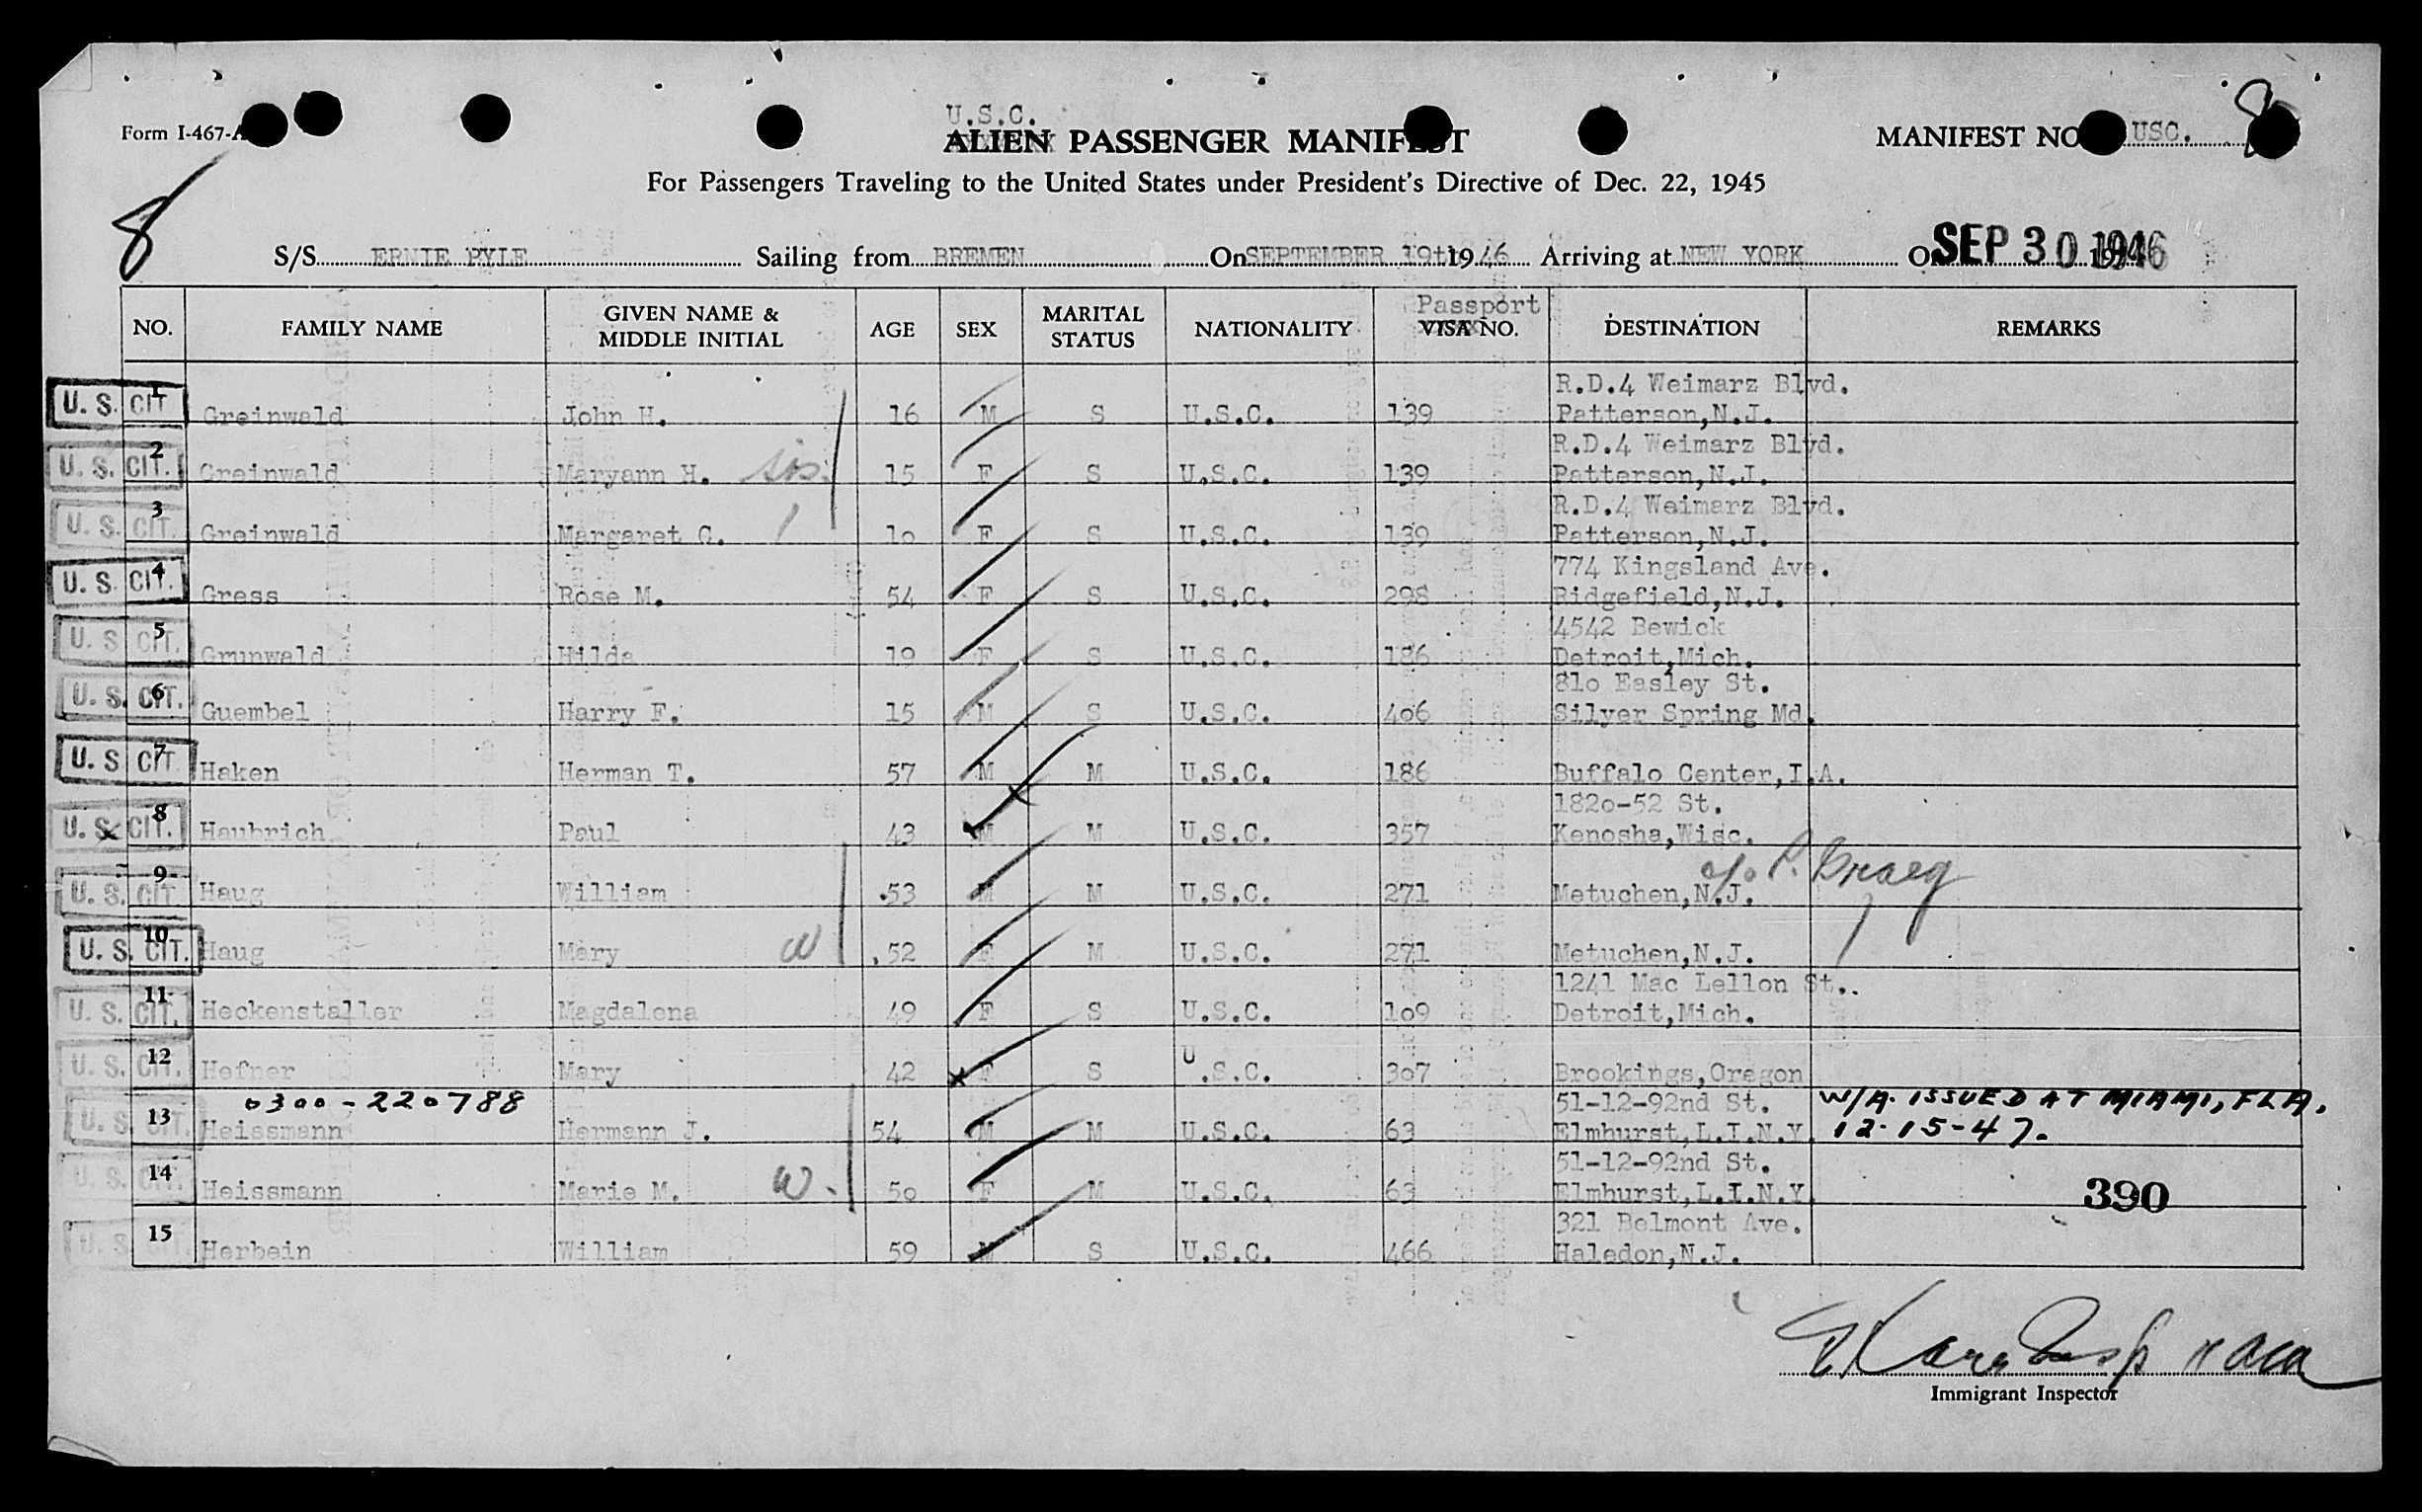 U.S.C.
Form I-467-A
ALIEN PASSENGER MANIFEST
MANIFEST NO. USC. 8
For Passengers Traveling to the United States under President's Directive of Dec. 22, 1945
8
S/S ERNIE PYLE Sailing from BREMEN On SEPTEMBER 19th 1946 Arriving at NEW YORK On SEP 30 1946
Passport
NO. FAMILY NAME GIVEN NAME & MIDDLE INITIAL AGE SEX MARITAL STATUS NATIONALITY VISA NO. DESTINATION REMARKS
R.D.4 Weimarz Blvd.
U. S. CIT 1 Greinwald John H. 16 M S U.S.C. 139 Patterson,N.J.
R.D.4 Weimarz Blvd.
U. S. CIT. 2 Greinwald Maryann H. sis. 15 F S U.S.C. 139 Patterson,N.J.
R.D.4 Weimarz Blvd.
U. S. CIT. 3 Greinwald Margaret G. 1o F S U.S.C. 139 Patterson,N.J.
774 Kingsland Ave.
U. S. CIT. 4 Gress Rose M. 54 F S U.S.C. 298 Ridgefield,N.J.
4542 Bewick
U. S. CIT. 5 Grunwald Hilda 19 F S U.S.C. 186 Detroit,Mich.
81o Easley St.
U. S. CIT. 6 Guembel Harry F. 15 M S U.S.C. 4o6 Silver Spring Md.
U. S. CIT. 7 Haken Herman T. 57 M M U.S.C. 186 Buffalo Center,I.A.
182o-52 St.
U. S. CIT. 8 Haubrich Paul 43 M M U.S.C. 357 Kenosha,Wisc.
U. S. CIT 9 Haug William 53 M M U.S.C. 271 Metuchen,N.J. c/o P.
U. S. CIT. 10 Haug Mary W 52 F M U.S.C. 271 Metuchen,N.J.
1241 Mac Lellon St..
U. S. CIT. 11 Heckenstaller Magdalena 49 F S U.S.C. 1o9 Detroit,Mich.
U. S. CIT. 12 Hefner Mary 42 F S U.S.C. 3o7 Brookings,Oregon
0300-220788 51-12-92nd St. W/A. ISSUED AT MIAMI, FLA.
U. S. CIT. 13 Heissmann Hermann J. 54 M M U.S.C. 63 Elmhurst,L.I.N.Y. 12-15-47.
51-12-92nd St.
U. S. CIT. 14 Heissmann Marie M. W. 5o F M U.S.C. 63 Elmhurst,L.I.N.Y.
390
321 Belmont Ave.
U. S. CIT. 15 Herbein William 59 M S U.S.C. 466 Haledon,N.J.
Immigrant Inspector